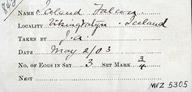 NAME Iceland Falcon
LOCALITY Vikingtatyn - Iceland
TAKEN BY J.a.
DATE May 2/03
NO. OF EGGS IN SET 3 SET MARK 3/4
NEST
MVZ 5305